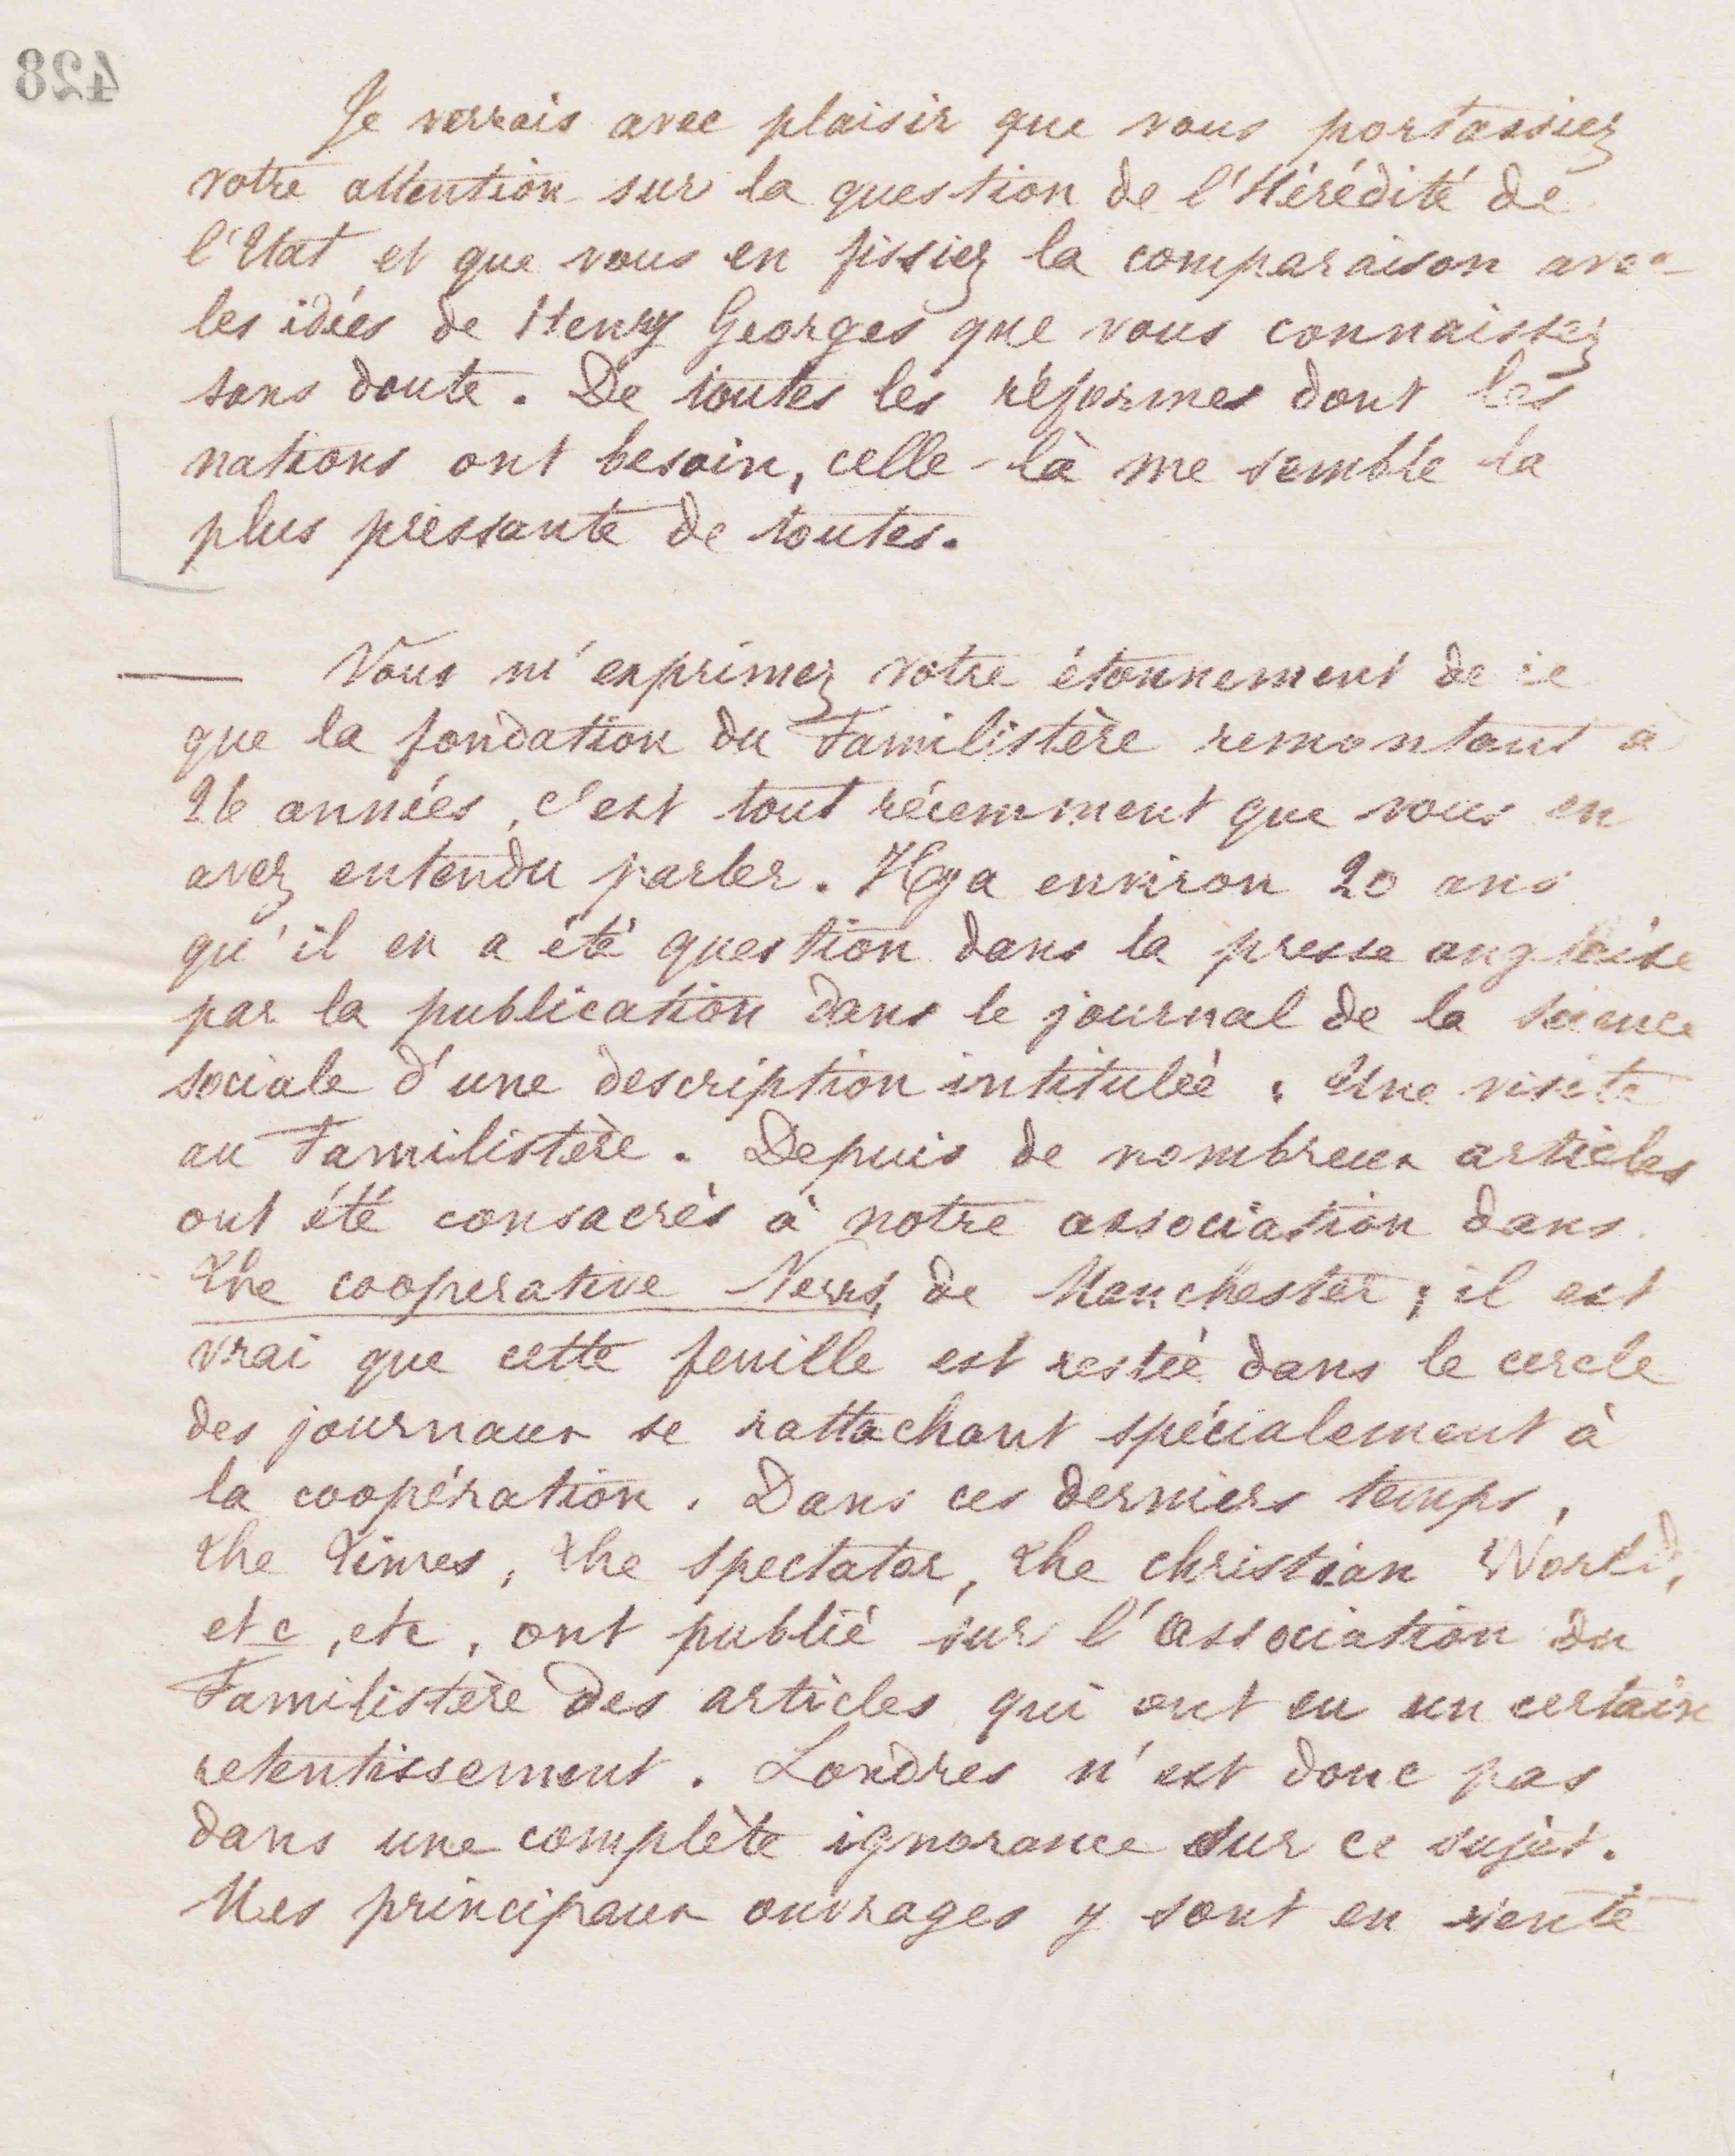 428
Je verrais avec plaisir que vous portassiez
votre attention sur la question de l'Hérédité de
l'Etat et que vous en fissiez la comparaison avec
les idées de Henry Georges que vous connaissez
sans doute. De toutes les réformes dont les
nations ont besoin, celle-là me semble la
plus pressante de toutes.
Vous m'exprimez votre étonnement de ce
que la fondation du Familistère remontant à
26 années, c'est tout récemment que vous en
avez entendu parler. Il y a environ 20 ans
qu'il en a été question dans la presse anglaise
par la publication dans le journal de la science
sociale d'une description intitulée : Une visite
au Familistère. Depuis de nombreux articles
ont été consacrés à notre association dans
the cooperative News, de Manchester ; il est
vrai que cette feuille est restée dans le cercle
des journaux se rattachant spécialement à
la coopération. Dans ces derniers temps,
the Times, the spectator, the christian World,
etc, etc, ont publié sur l'association du
Familistère des articles qui ont eu un certain
retentissement. Londres n'est donc pas
dans une complète ignorance sur ce sujet.
Mes principaux ouvrages y sont en vente